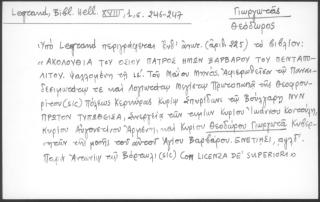 Legrand, Bibl. Hell. XVIII, 1, σ. 246-247
Γιωργωτᾶς
Θεόδωρος
Ὑπὸ Legrand περιγράφεται ὑπ' ἀριθ. (ἀριθ. 225) τὸ βιβλίον:
«ΑΚΟΛΟΥΘΙΑ ΤΟΥ ΟΣΙΟΥ ΠΑΤΡΟΣ ΗΜΩΝ ΒΑΡΒΑΡΟΥ ΤΟΥ ΠΕΝΤΑΠΟ-
ΛΙΤΟΥ. Ψαλλομένη τῇ ιε΄. Τοῦ Μαΐου Μηνός. Ἀφιερωθεῖσα τῷ Παναι-
δεσιμωτάτῳ τε καὶ Λογιωτάτῳ Μεγάλῳ Πρωτοπαπᾷ τῆς Θεοφρου-
ρίτου (sic) Πόλεως Κερκύρας Κυρίῳ Σπυρίδωνι τῷ Βούλγαρι ΝΥΝ
ΠΡΩΤΟΝ ΤΥΠΩΘΕΙΣΑ, συνεργείᾳ τῶν τιμίων Κυρίου Ἰωάννου
Κυρίου Αὐγουστίνου καὶ Κυρίου Θεοδώρου Γιωργωτᾶ Κυβερ-
νητῶν τῆς μονῆς τοῦ αὐτοῦ Ἁγίου Βαρβάρου. ΕΝΕΤΙΗΣΙ,
Παρὰ Ἀντωνίῳ τῷ Βόρτολι (sic) Con LICENZA DE' SUPERIORI»